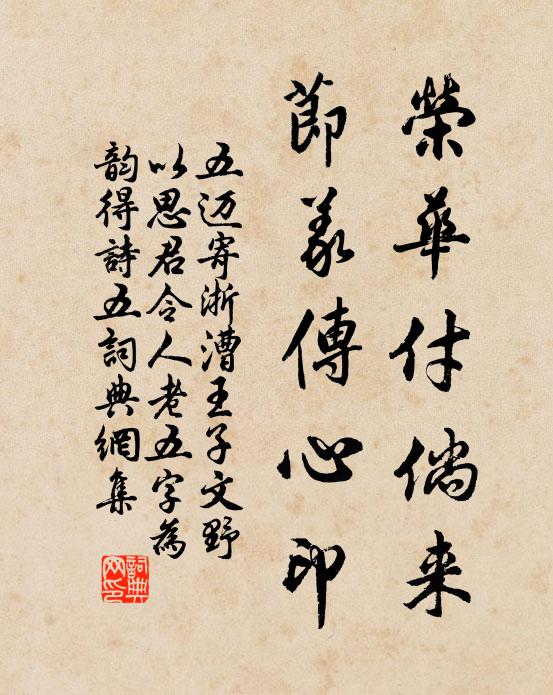 榮華付倘来
節義傳心印
五迈寄淅漕王子文野
以思君令人老五字為
韵得詩五詞典網集
詞典网印